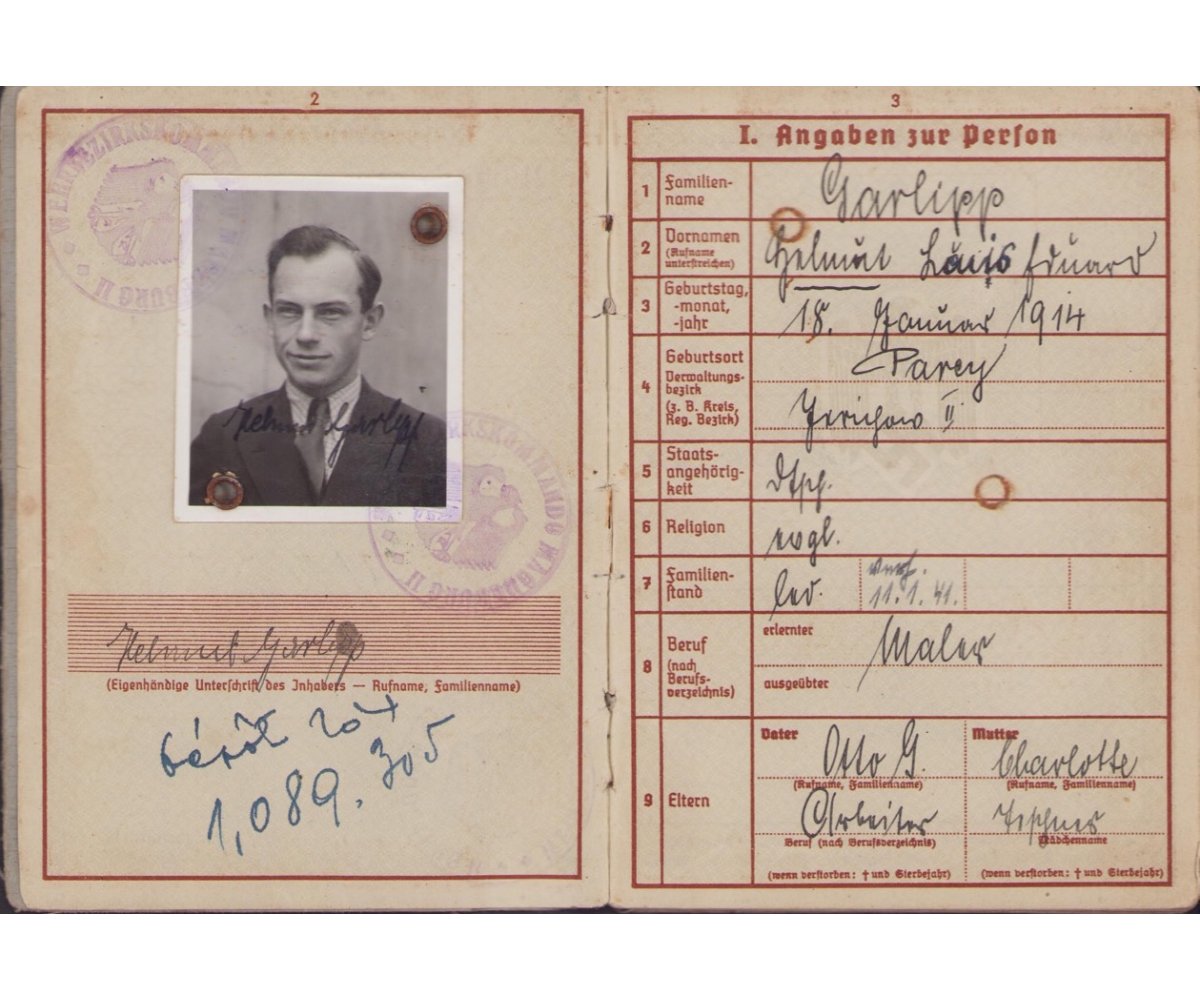 2
WEHRBEZIRKSKOMMANDO MAGDEBURG II
Helmut Garlipp
WEHRBEZIRKSKOMMANDO MAGDEBURG II
Helmut Garlipp
(Eigenhändige Unterschrift des Inhabers — Rufname, Familienname)
1,089.305
3
I. Angaben zur Person
1 Familien-
name
Garlipp
2 Vornamen
(Rufname
unterstreichen)
Helmut Louis Eduard
3 Geburtstag,
-monat,
-jahr
18. Januar 1914
4 Geburtsort
Verwaltungs-
bezirk
(z. B. Kreis,
Reg. Bezirk)
Parey
Jerichow II
5 Staats-
angehörig-
keit
dtsch.
6 Religion
evgl.
7 Familien-
stand
led.
verh.
11.1.41.
8 Beruf
(nach
Berufs-
verzeichnis)
erlernter
Maler
ausgeübter
9 Eltern
Vater
Otto G.
(Rufname, Familienname)
Arbeiter
Beruf (nach Berufsverzeichnis)
(wenn verstorben: † und Sterbejahr)
Mutter
Charlotte
(Rufname, Familienname)
Mädchenname
(wenn verstorben: † und Sterbejahr)